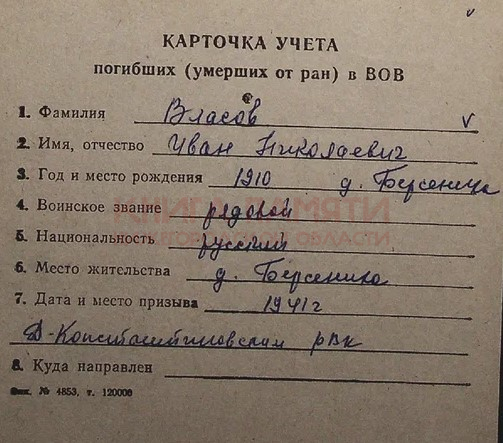 КАРТОЧКА УЧЕТА
погибших (умерших от ран) в ВОВ
1. Фамилия Власов
2. Имя, отчество Иван Николаевич
3. Год и место рождения 1910 д. Берсениха
КНИГА ПАМЯТИ
4. Воинское звание рядовой
НИЖЕГОРОДСКОЙ ОБЛАСТИ
5. Национальность русский
6. Место жительства д. Берсениха
7. Дата и место призыва 1941г
Д-Константиновским рвк
8. Куда направлен
№ 4853, т. 120000